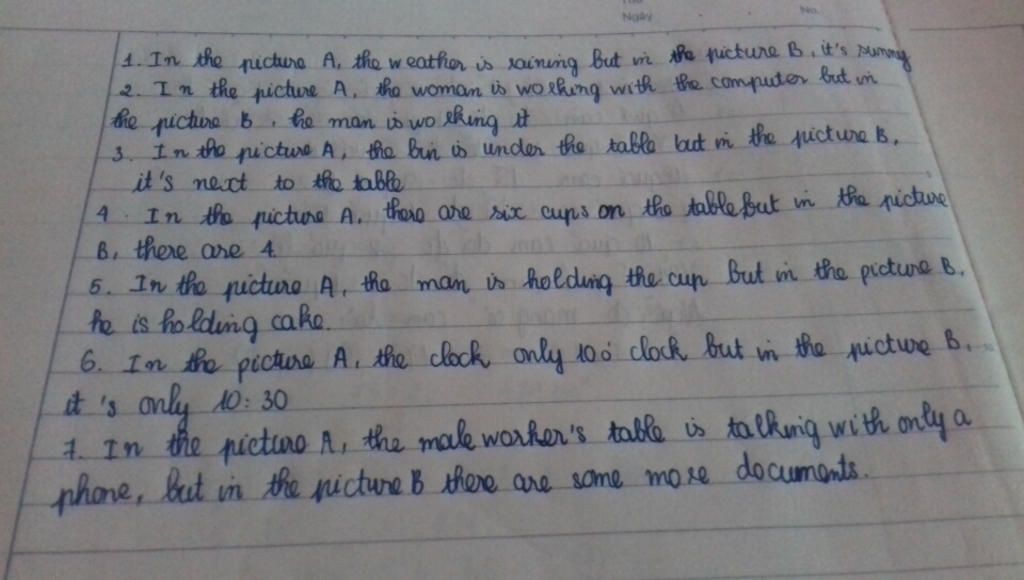 Ngày
No.
1. In the picture A, the weather is raining but in the picture B, it's sunny
2. In the picture A, the woman is working with the computer but in
the picture B, the man is working it
3. In the picture A, the bin is under the table but in the picture B,
it's next to the table
4. In the picture A, there are six cups on the table but in the picture
B, there are 4.
5. In the picture A, the man is holding the cup but in the picture B,
he is holding cake.
6. In the picture A, the clock only 10 o' clock but in the picture B,
it's only 10:30
7. In the picture A, the male worker's table is talking with only a
phone, but in the picture B there are some more documents.